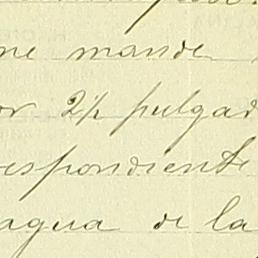 me mande
or 2 1/2 pulgad
respondiente
agua de la